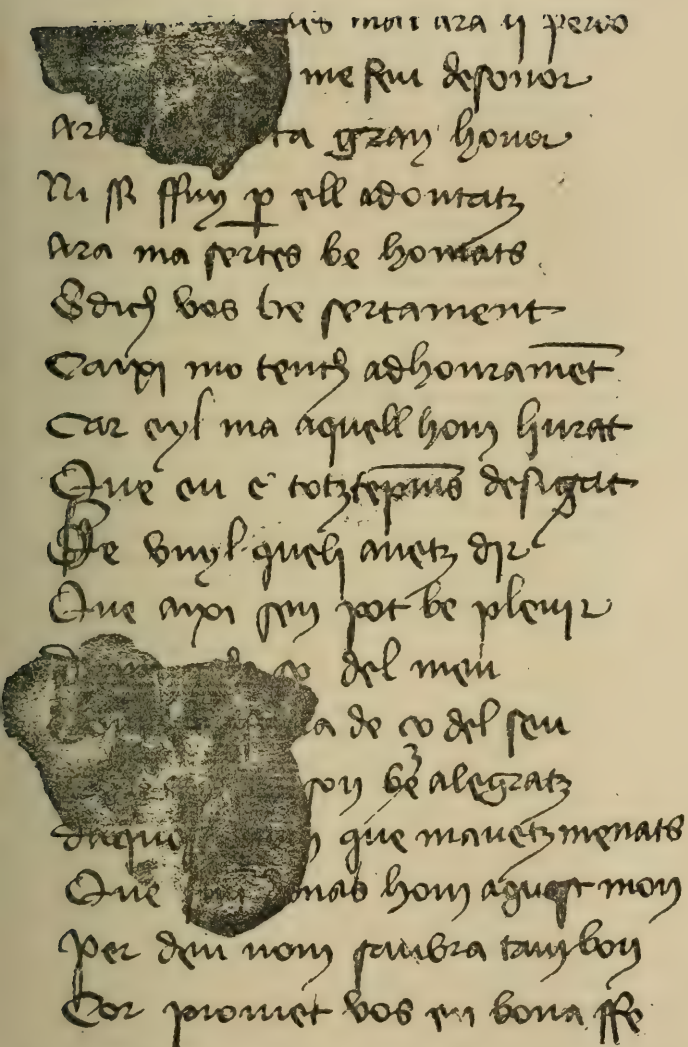 mon ara y perço
me feu desonor
ara ta gran honor
Ni si ffuy p ell adontatz
ara ma sertes be honrats
E dich vos be sertament
Caixi mo tench adhonramet
Car eyl ma aquell hom liurat
Que eu e totz temps desigat
Be vuyl queli avetz dir
Que aixi sen pot be plevir
co del meu
a de co del seu
son be alegratz
daque que mavetz menats
Que mi donas hom aquest mon
Per deu nom saubra tan bon
Cor promet vos en bona ffe